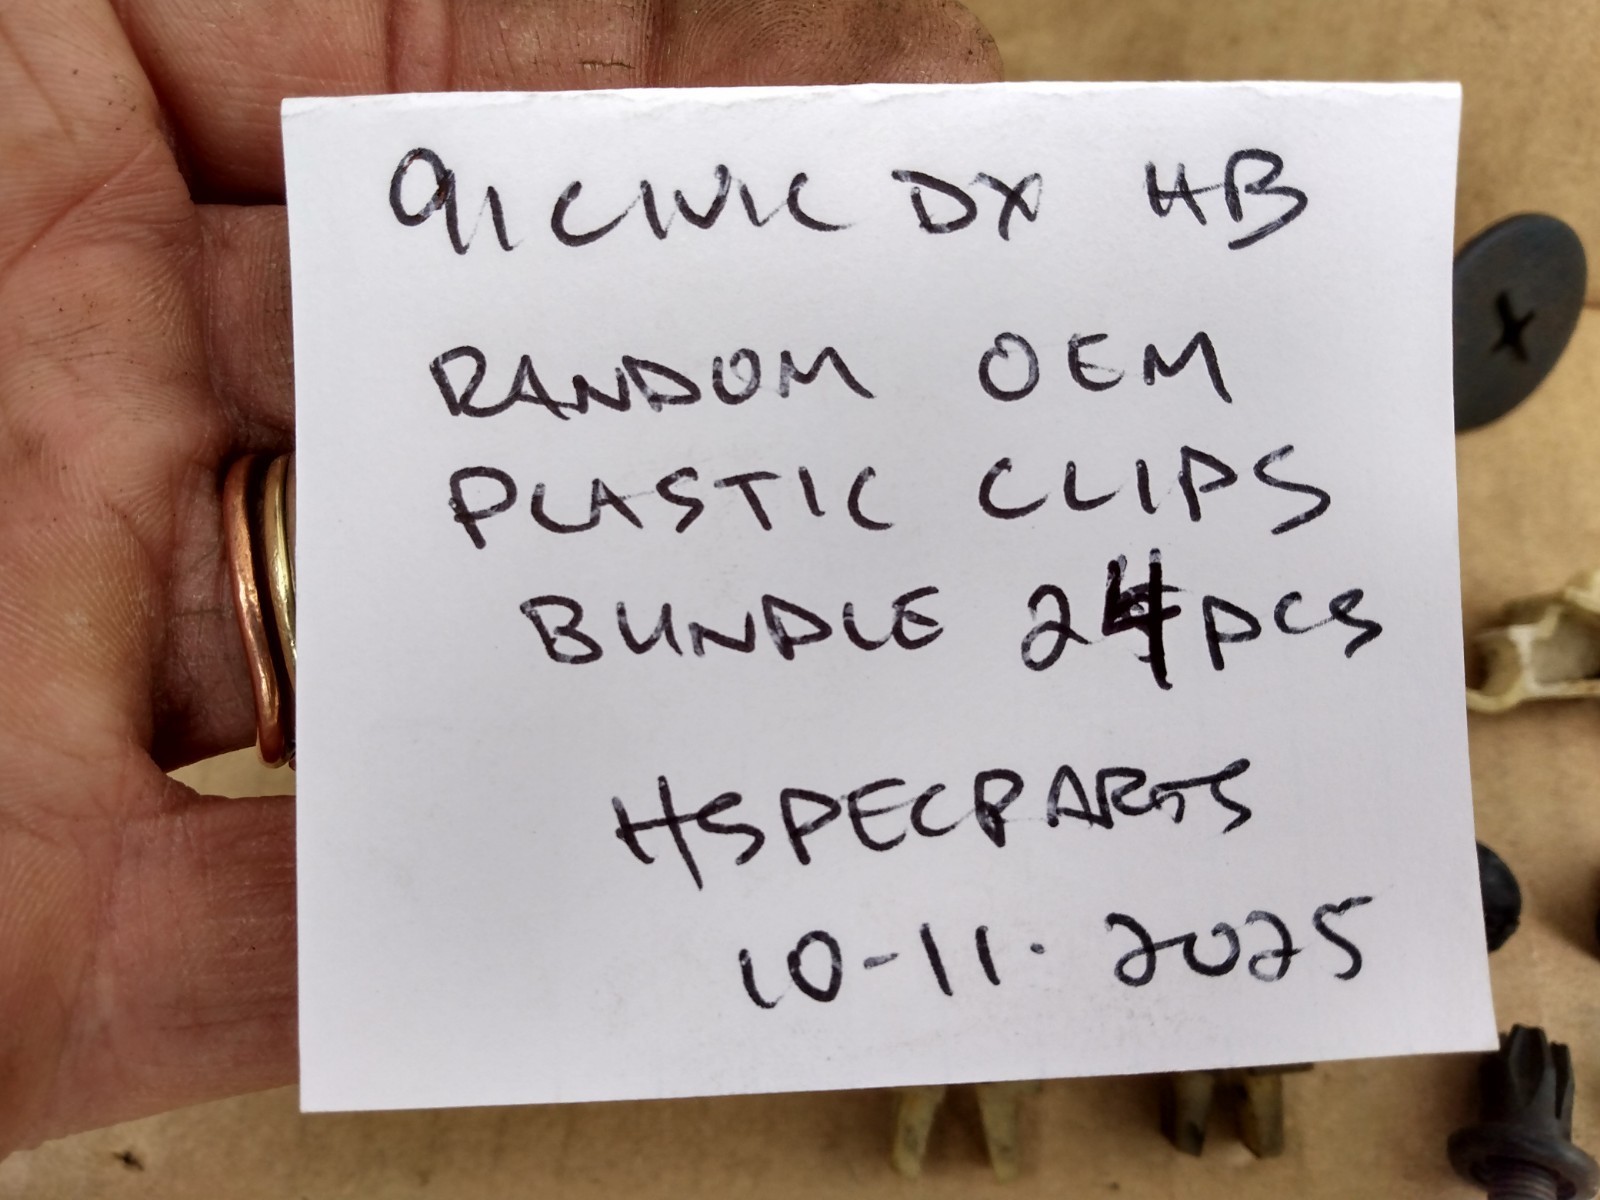 91 CIVIC DX HB
RANDOM OEM
PLASTIC CLIPS
BUNDLE 24 PCS
HSPECPARTS
10-11-2025